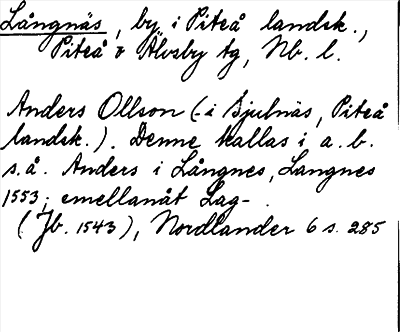 Långnäs, by i Piteå landsk.,
Piteå & Älvsby tg, Nb. l.
Anders Ollson (: i Bjulnäs, Piteå
landsk.). Denne kallas i a. b.
s. å. Anders i Långnes, Langnes
1553; emellanåt Lag-
(Jb. 1543), Nordlander 6 s. 285